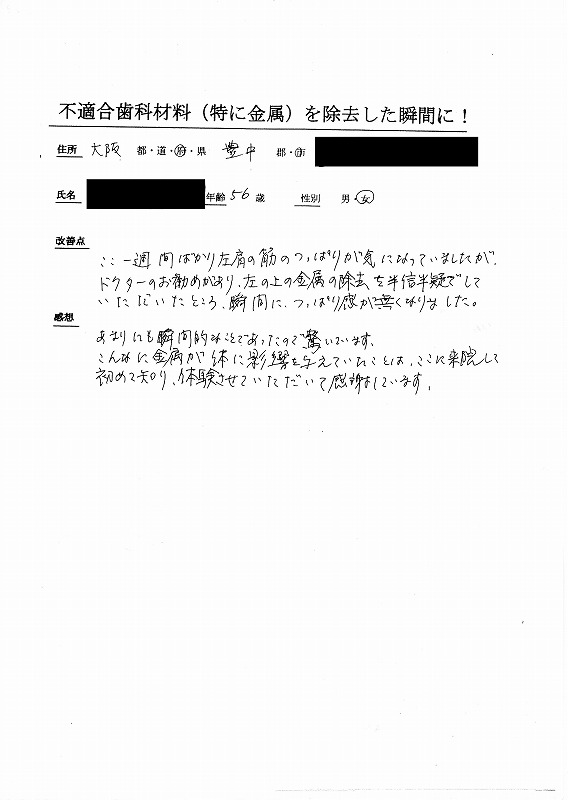 不適合歯科材料（特に金属）を除去した瞬間に！
住所 大阪 都・道・府・県 豊中 郡・市
氏名 年齢 56 歳 性別 男・女
改善点
ここ一週間ばかり左肩の筋のつっぱりが気になっていましたが、
ドクターのお勧めがあり、左の上の金属の除去を半信半疑でして
いただいたところ、瞬間に、つっぱり感が無くなりました。
感想
あまりにも瞬間的なことであったので驚いています。
こんなに金属が体に影響を与えていたことは、ここに来院して
初めて知り、体験させていただいて感謝しています。